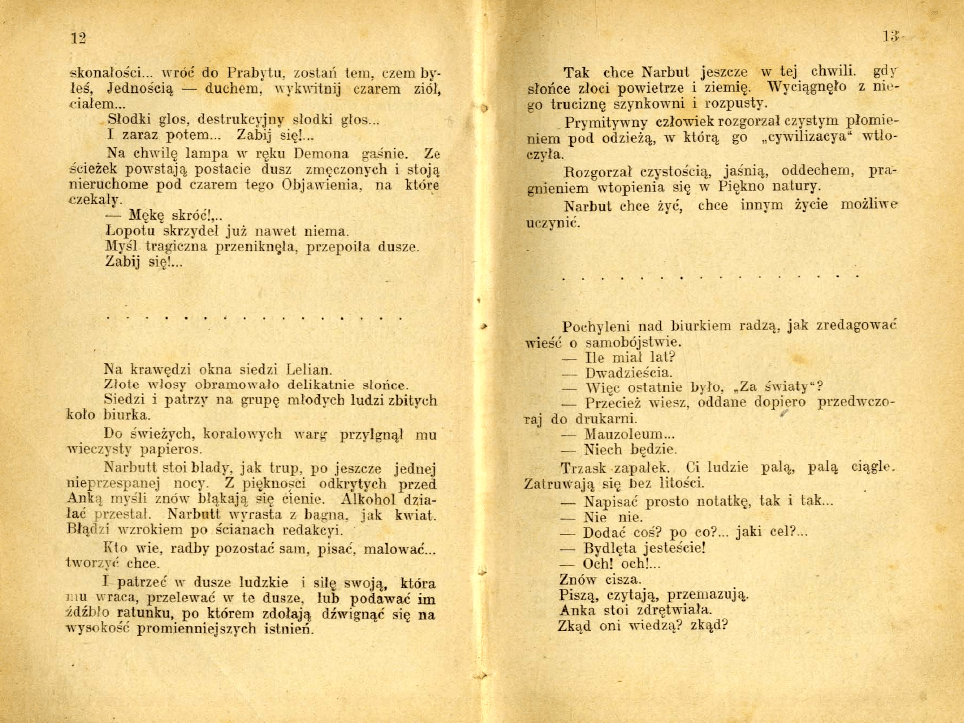 12
skonałości... wróć do Prabytu, zostań tem, czem by-
łeś, Jednością — duchem, wykwitnij czarem ziół,
ciałem...
Słodki głos, destrukcyjny słodki głos...
I zaraz potem... Zabij się!...
Na chwilę lampa w ręku Demona gaśnie. Ze
ścieżek powstają postacie dusz zmęczonych i stoją
nieruchome pod czarem tego Objawienia, na które
czekały.
— Mękę skróć!,..
Łopotu skrzydeł już nawet niema.
Myśl tragiczna przeniknęła, przepoiła dusze.
Zabij się!...
. . . . . . . . . . . . . . . .
Na krawędzi okna siedzi Lelian.
Złote włosy obramowało delikatnie słońce.
Siedzi i patrzy na grupę młodych ludzi zbitych
koło biurka.
Do świeżych, koralowych warg przylgnął mu
wieczysty papieros.
Narbutt stoi blady, jak trup, po jeszcze jednej
nieprzespanej nocy. Z piękności odkrytych przed
Anką myśli znów błąkają się cienie. Alkohol dzia-
łać przestał. Narbutt wyrasta z bagna, jak kwiat.
Błądzi wzrokiem po ścianach redakcyi.
Kto wie, radby pozostać sam, pisać, malować...
tworzyć chce.
I patrzeć w dusze ludzkie i siłę swoją, która
mu wraca, przelewać w te dusze, lub podawać im
źdźbło ratunku, po którem zdołają dźwignąć się na
wysokość promienniejszych istnień.
13
Tak chce Narbut jeszcze w tej chwili. gdy
słońce złoci powietrze i ziemię. Wyciągnęło z nie-
go truciznę szynkowni i rozpusty.
Prymitywny człowiek rozgorzał czystym płomie-
niem pod odzieżą, w którą go „cywilizacya“ wtło-
czyła.
Rozgorzał czystością, jaśnią, oddechem, pra-
gnieniem wtopienia się w Piękno natury.
Narbut chce żyć, chce innym życie możliwe
uczynić.
. . . . . . . . . . . . . . . .
Pochyleni nad biurkiem radzą, jak zredagować
wieść o samobójstwie.
— Ile miał lat?
— Dwadzieścia.
— Więc ostatnie było, „Za światy“?
— Przecież wiesz, oddane dopiero przedwczo-
raj do drukarni.
— Mauzoleum...
— Niech będzie.
Trzask zapałek. Ci ludzie palą, palą ciągle.
Zatruwają się bez litości.
— Napisać prosto notatkę, tak i tak...
— Nie nie.
— Dodać coś? po co?... jaki cel?...
— Bydlęta jesteście!
— Och! och!...
Znów cisza.
Piszą, czytają, przemazują.
Anka stoi zdrętwiała.
Zkąd oni wiedzą? zkąd?